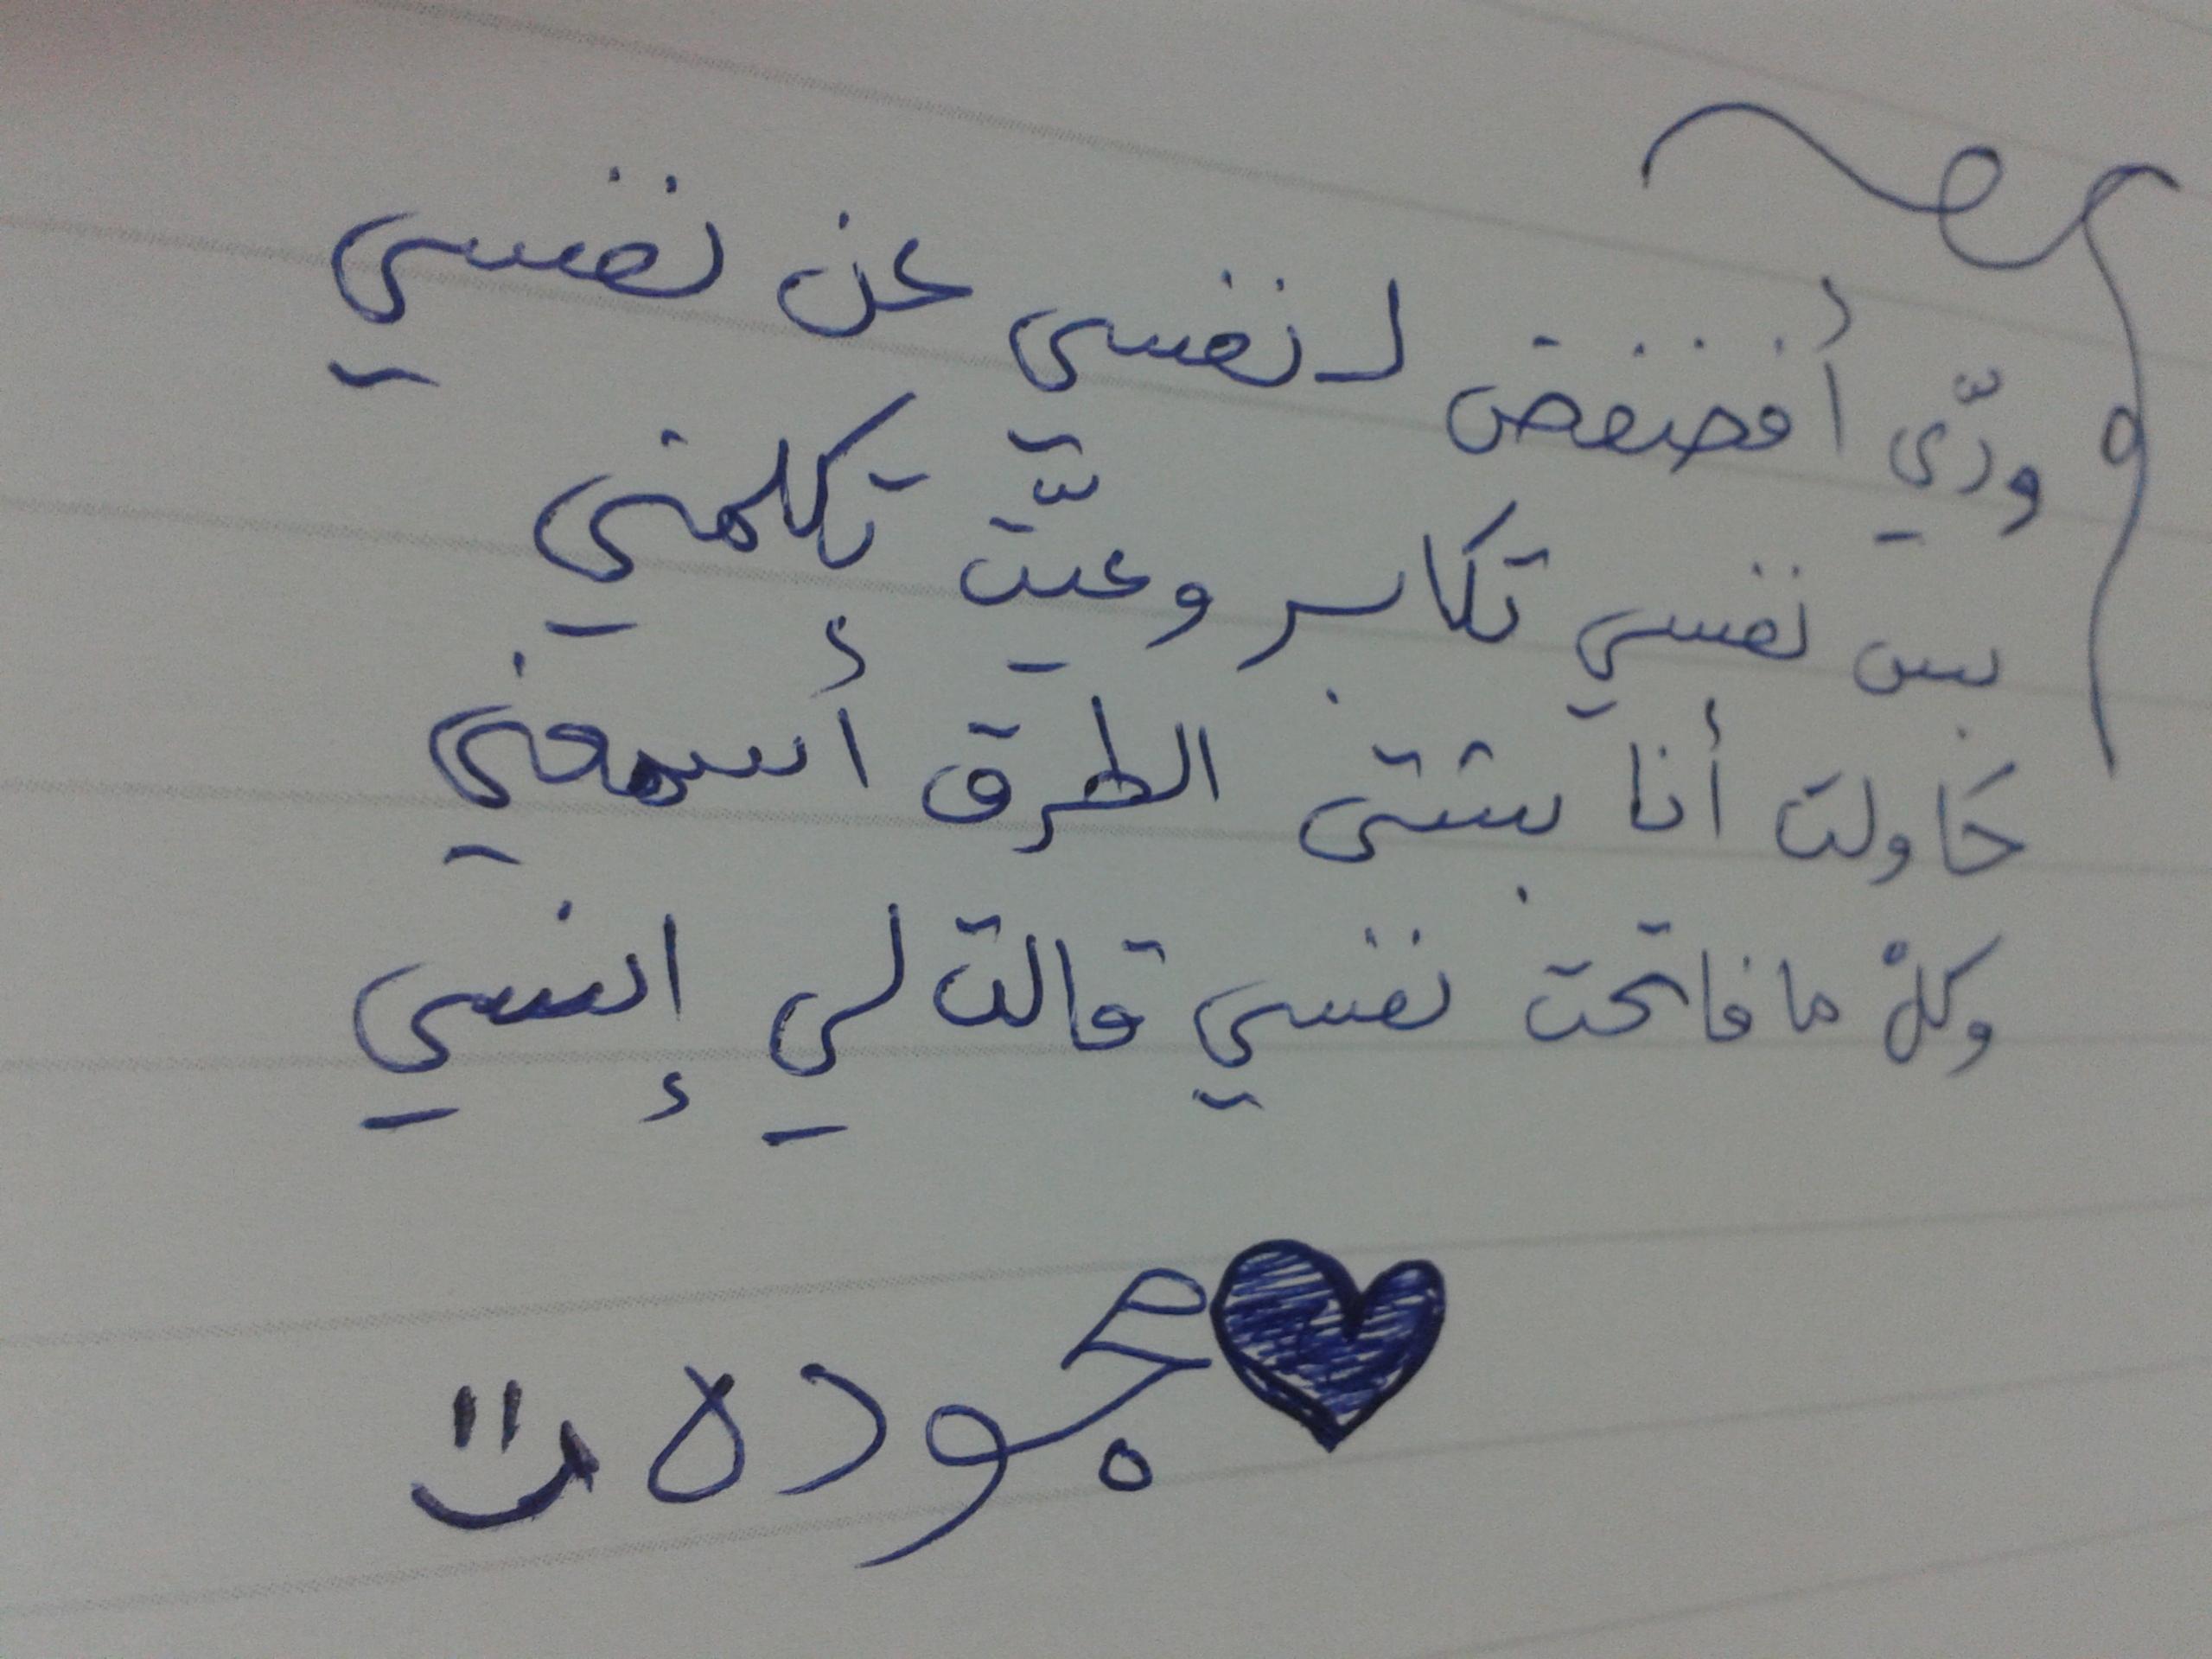 ودّي أفضفض لـ نفسي عن نفسي
بس نفسي تكابر وعيَّت تكلمني
حَاولت أنا بشتى الطرق أسمعني
وكلْ ما فاتحت نفسي قالت لي إنسي
جوده